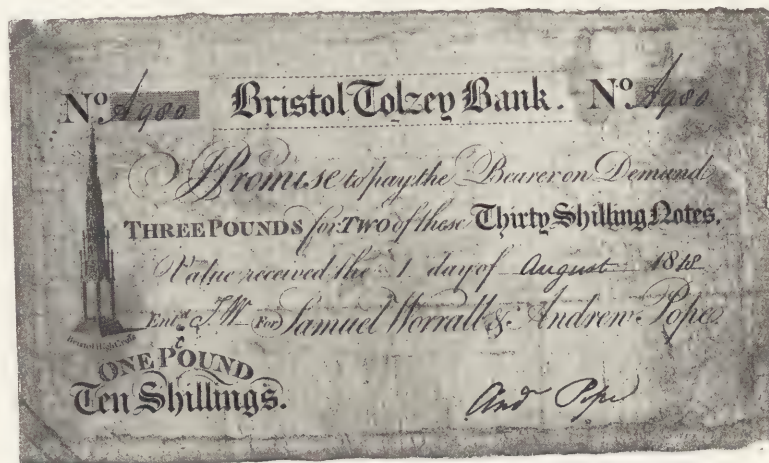 No. A980 Bristol Tolzey Bank. No. A980
I Promise to pay the Bearer on Demand
THREE POUNDS for TWO of these Thirty Shilling Notes.
Value received the 1 day of August 1818
Entd. J W For Samuel Worrall & Andrew Pope
Bristol High Cross
ONE POUND
Ten Shillings.
And Pope